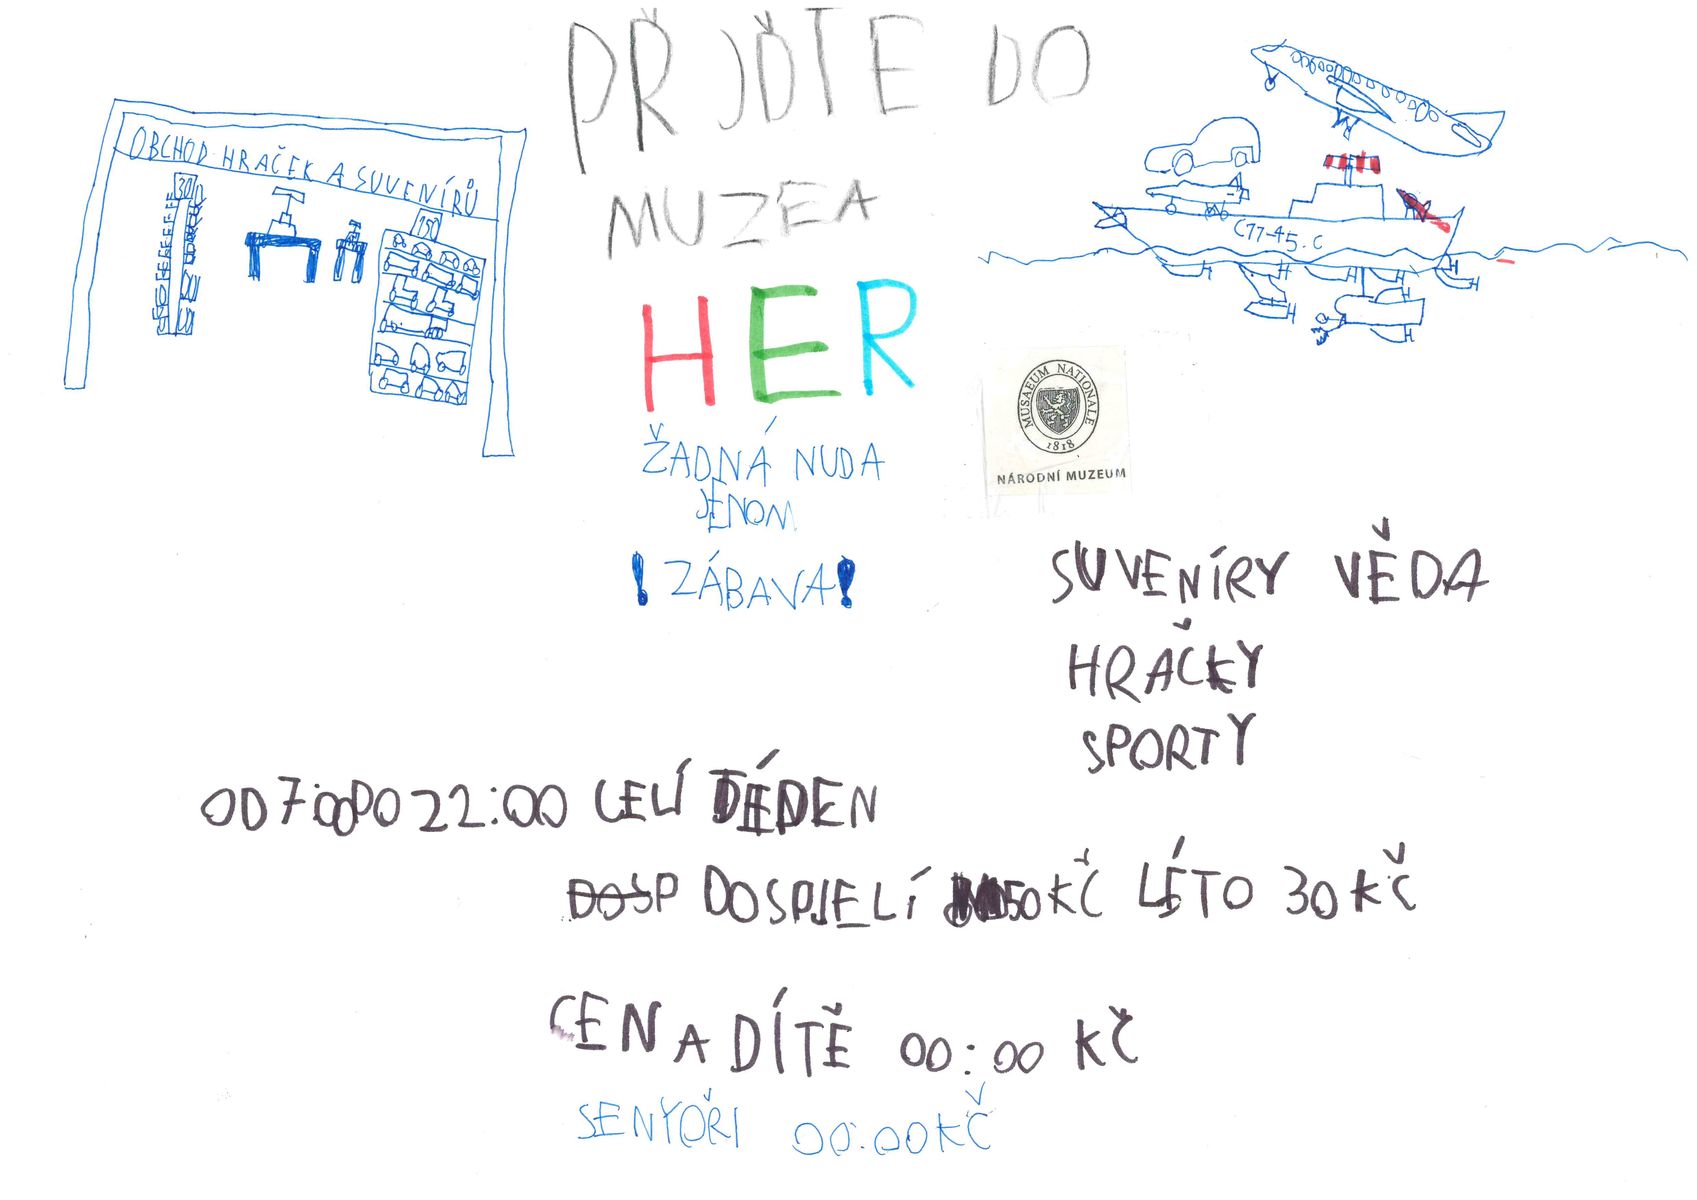 PŘJĎTE DO
MUZEA
HER
ŽADNÁ NUDA
JENOM
! ZÁBAVA!
OBCHOD HRAČEK A SUVENÍRŮ
30
150
C77-45.C
MUSAEUM NATIONALE
1818
NÁRODNÍ MUZEUM
SUVENÍRY VĚDA
HRAČKY
SPORTY
OD 7:00 DO 22:00 CELÍ TÉDEN
DOSP DOSPJELÍ 50 KČ LÉTO 30 KČ
CENA DÍTĚ 00:00 KČ
SENYOŘI 00:00 KČ